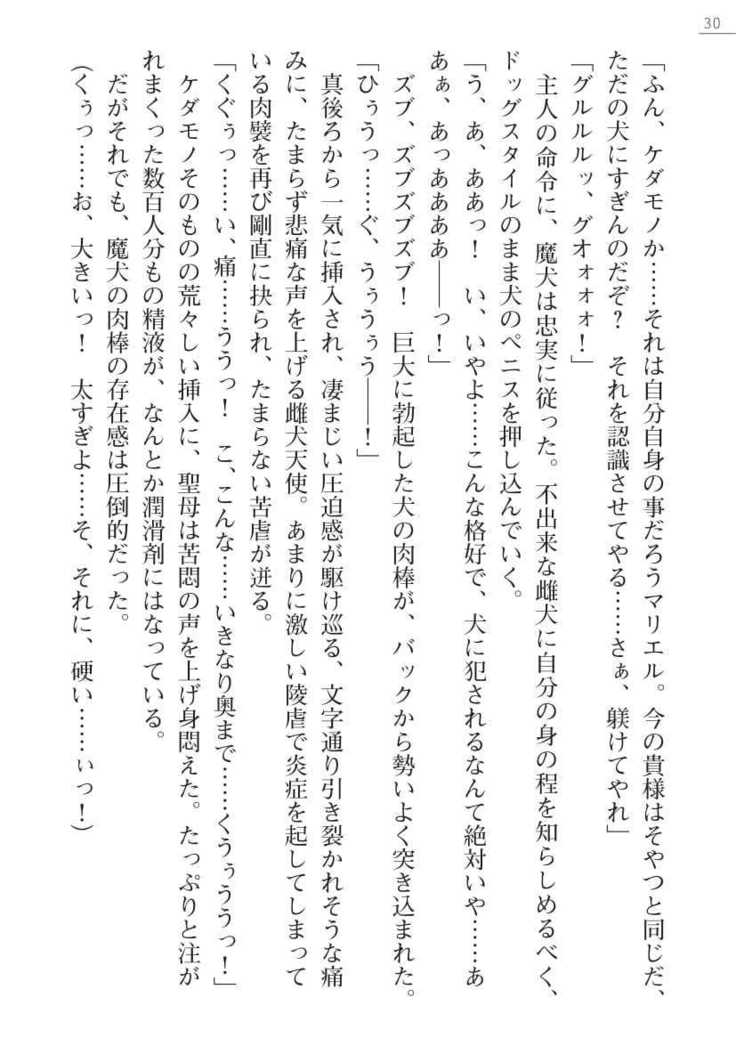 30
「ふん、ケダモノか……それは自分自身の事だろうマリエル。今の貴様はそやつと同じだ、
ただの犬にすぎんのだぞ？　それを認識させてやる……さぁ、躾けてやれ」
「グルルルッ、グオォォォ！」
　主人の命令に、魔犬は忠実に従った。不出来な雌犬に自分の身の程を知らしめるべく、
ドッグスタイルのまま犬のペニスを押し込んでいく。
「う、あ、ああっ！　い、いやよ……こんな格好で、犬に犯されるなんて絶対いや……あ
あぁ、あっああああ――っ！」
　ズブ、ズブズブズブ！　巨大に勃起した犬の肉棒が、バックから勢いよく突き込まれた。
「ひぅうっ……ぐ、うぅうぅう――！」
　真後ろから一気に挿入され、凄まじい圧迫感が駆け巡る、文字通り引き裂かれそうな痛
みに、たまらず悲痛な声を上げる雌犬天使。あまりに激しい陵虐で炎症を起してしまって
いる肉襞を再び剛直に抉られ、たまらない苦虐が迸る。
「くぐぅっ……い、痛……ううっ！　こ、こんな……いきなり奥まで……くうぅううっ！」
　ケダモノそのものの荒々しい挿入に、聖母は苦悶の声を上げ身悶えた。たっぷりと注が
れまくった数百人分もの精液が、なんとか潤滑剤にはなっている。
　だがそれでも、魔犬の肉棒の存在感は圧倒的だった。
（くぅっ……お、大きいっ！　太すぎよ……そ、それに、硬い……ぃっ！）